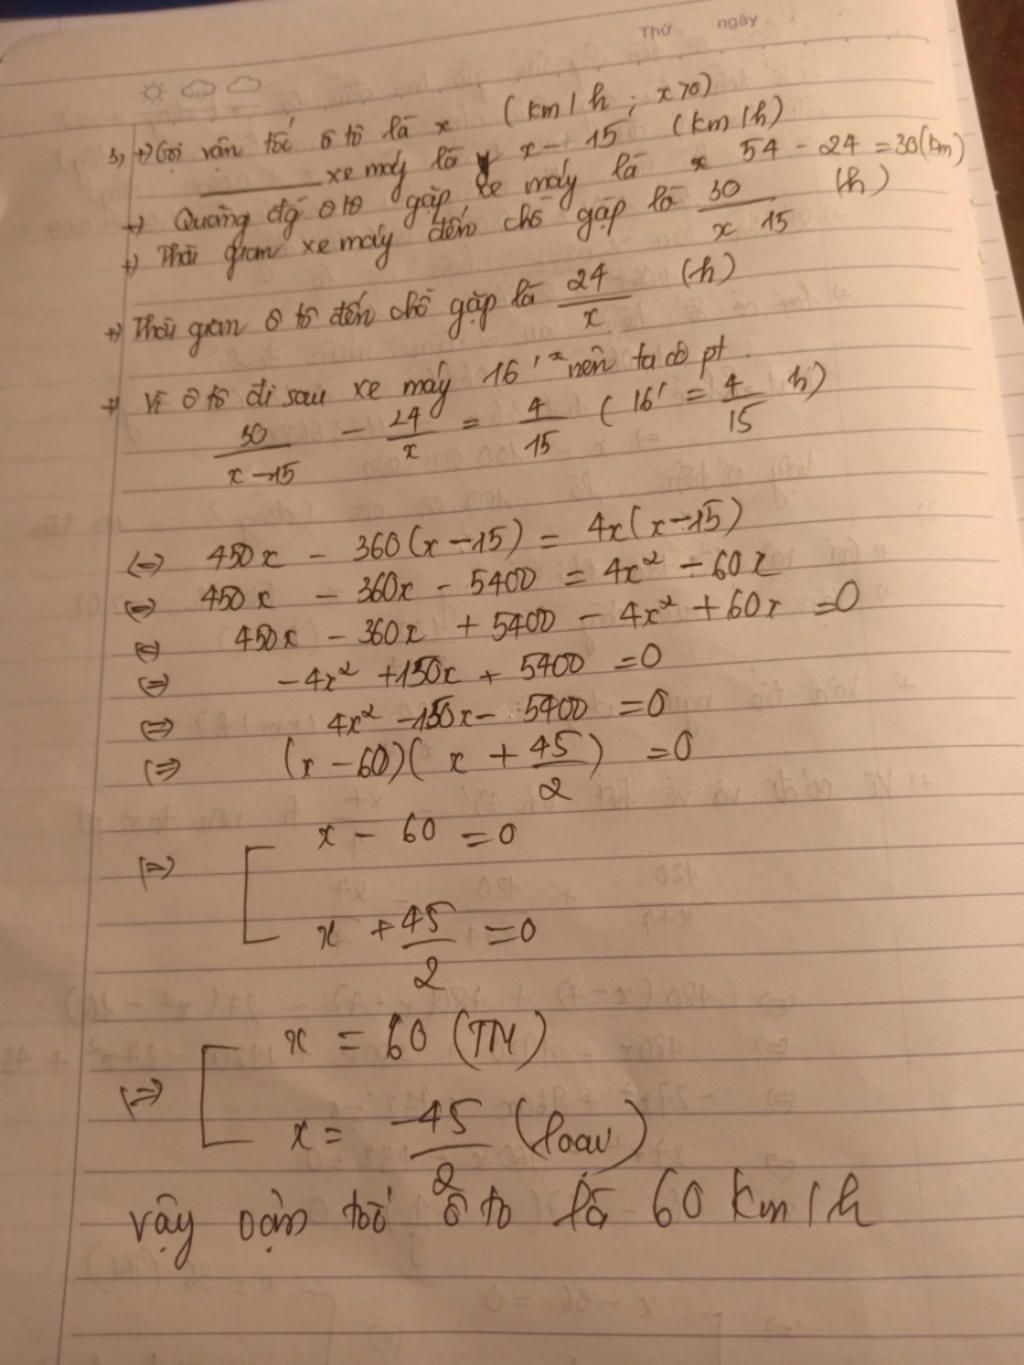 Thứ ngày
3, +) Gọi vận tốc ô tô là x (km/h ; x>0)
______ xe máy là x - 15 (km/h)
+) Quãng đg ô tô gặp xe máy là 54 - 24 = 30 (km)
+) Thời gian xe máy đến chỗ gặp là 30/(x 15) (h)
+) Thời gian ô tô đến chỗ gặp là 24/x (h)
+) Vì ô tô đi sau xe máy 16' nên ta có pt
30/(x-15) - 24/x = 4/15 (16' = 4/15 h)
(=) 450x - 360(x-15) = 4x(x-15)
(=) 450x - 360x - 5400 = 4x² - 60x
(=) 450x - 360x + 5400 - 4x² + 60x = 0
(=) -4x² + 150x + 5400 = 0
(=) 4x² - 150x - 5400 = 0
(=) (x-60)(x + 45/2) = 0
(=) [ x - 60 = 0
x + 45/2 = 0
(=) [ x = 60 (TM)
x = -45/2 (loại)
vậy vận tốc ô tô là 60 km/h